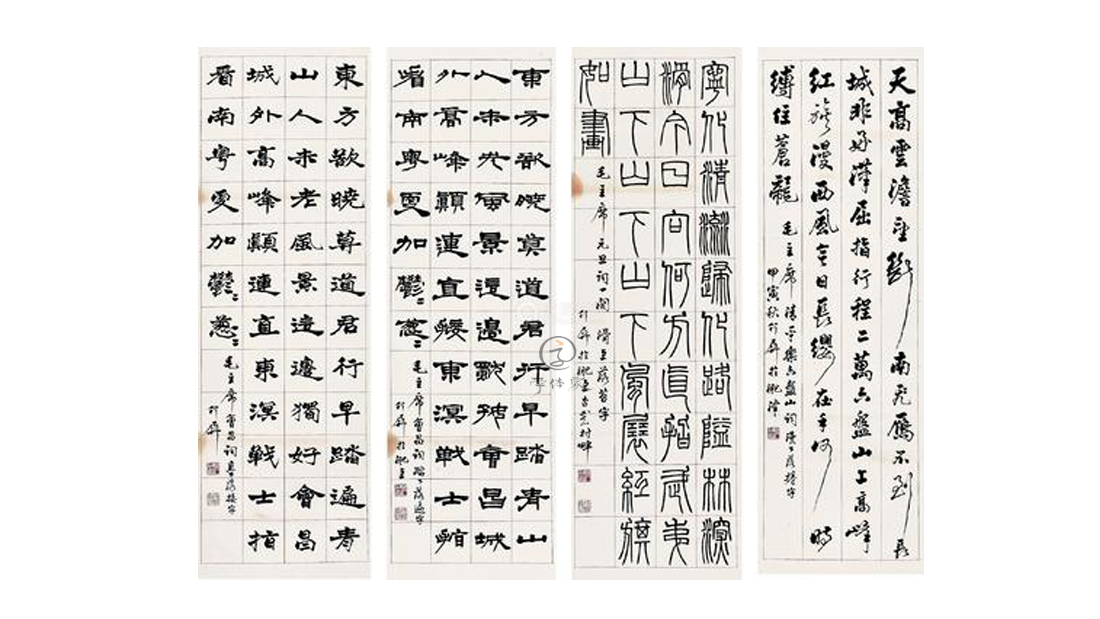 天高雲澹望斷南飛雁不到長
城非好漢屈指行程二萬六盤山上高峰
紅旗漫西風今日長纓在手何時
縛住蒼龍
毛主席清平樂六盤山詞漫下落捲字
甲寅秋
寧化清流歸化路隘林深
滑今日向何方直指武夷
山下山下山下風展紅旗
如畫
毛主席元旦詞一闋 滑上落苔字
東方欲曉莫道君行早踏青山
人未老風景這邊獨好會昌城
外高峰顛連直接東溟戰士指
看南粵更加鬱〻蔥〻
毛主席會昌詞踏下落遍字
東方欲曉莫道君行早踏遍青
山人未老風景這邊獨好會昌
城外高峰顛連直東溟戰士指
看南粵更加鬱〻蔥〻
毛主席會昌詞直下落接字